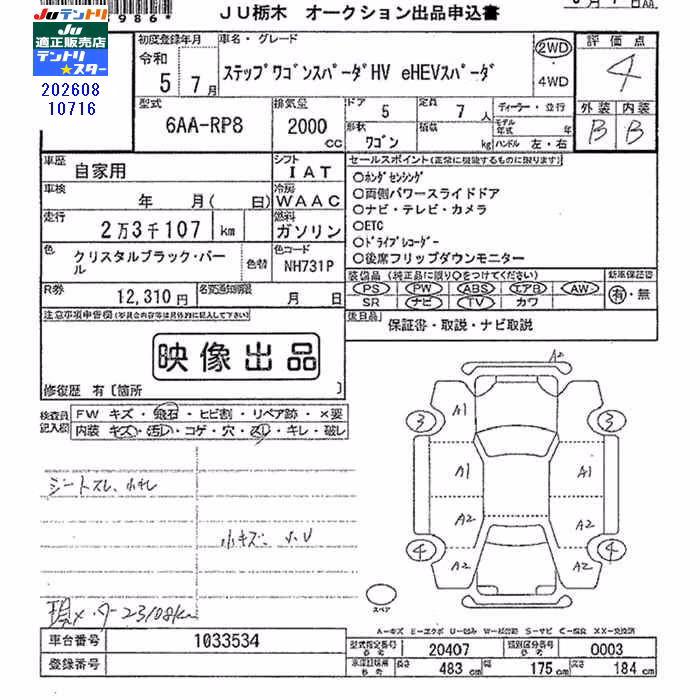 JU 986*
JU栃木 オークション出品申込書
月 7 日AA.
JU テントリ
JU 適正販売店
テントリ★スター
202608
10716
初度登録年月
令和
5 7月
車名・グレード
ステップワゴンスパーダHV eHEVスパーダ
2WD
4WD
評価点
4
外装 内装
B B
型式
6AA-RP8
排気量
2000 cc
ドア 5
定員 7人
形状 ワゴン
積載 kg
ディーラー・並行
モデル年式 年
ハンドル 左・右
車歴 自家用
シフト IAT
車検 年 月( 日)
冷房 WAAC
走行 2万3千107 km
燃料 ガソリン
色 クリスタルブラック・パール
色替
色コード NH731P
R券 12,310円
名変通知期限 月 日
セールスポイント(正常に機能するものに限ります)
○ホンダセンシング
○両側パワースライドドア
○ナビ・テレビ・カメラ
○ETC
○ドライブレコーダー
○後席フリップダウンモニター
装備品(純正品に限り○をつけてください)
PS PW ABS エアB AW
SR ナビ TV カワ
新車保証書
有・無
後日品 保証書・取説・ナビ取説
注意事項申告欄(参考自内容等は具体的に記入して下さい)
映像出品
修復歴 有[箇所 ]
検査員記入欄
FW キズ・飛石・ヒビ割・リペア跡・×要
内装 キズ・汚レ・コゲ・穴・スレ・キレ・破レ
シートスレ、ヨゴレ
小キズ、小U
現メーター23108km
A2
3 A1 3
A1 A1
A2 A2
4 A2 A2 4
スペア
A-キズ E-エクボ U-凹み W-板金跡 S-サビ C-腐食 XX-交換済
車台番号 1033534
登録番号
型式指定番号 20407
類別区分番号 0003
車庫証明用
長さ 483 cm
幅 175 cm
高さ 184 cm